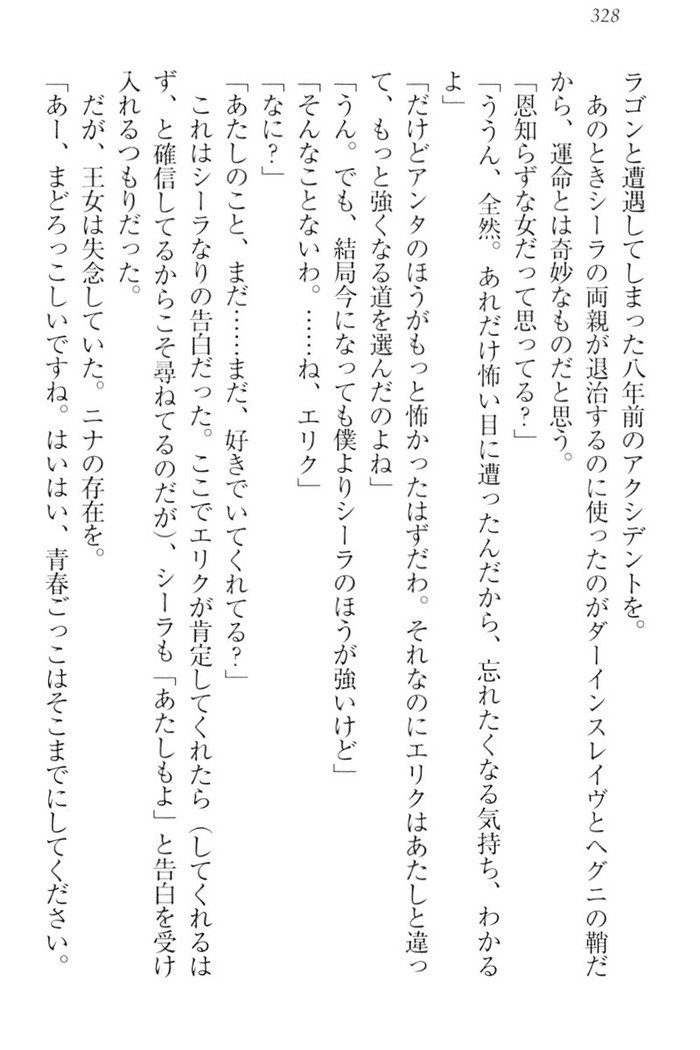 328
ラゴンと遭遇してしまった八年前のアクシデントを。
　あのときシーラの両親が退治するのに使ったのがダーインスレイヴとヘグニの鞘だ
から、運命とは奇妙なものだと思う。
「恩知らずな女だって思ってる？」
「ううん、全然。あれだけ怖い目に遭ったんだから、忘れたくなる気持ち、わかる
よ」
「だけどアンタのほうがもっと怖かったはずだわ。それなのにエリクはあたしと違っ
て、もっと強くなる道を選んだのよね」
「うん。でも、結局今になっても僕よりシーラのほうが強いけど」
「そんなことないわ。……ね、エリク」
「なに？」
「あたしのこと、まだ……まだ、好きでいてくれてる？」
　これはシーラなりの告白だった。ここでエリクが肯定してくれたら（してくれるは
ず、と確信してるからこそ尋ねてるのだが）、シーラも「あたしもよ」と告白を受け
入れるつもりだった。
　だが、王女は失念していた。ニナの存在を。
「あー、まどろっこしいですね。はいはい、青春ごっこはそこまでにしてください。